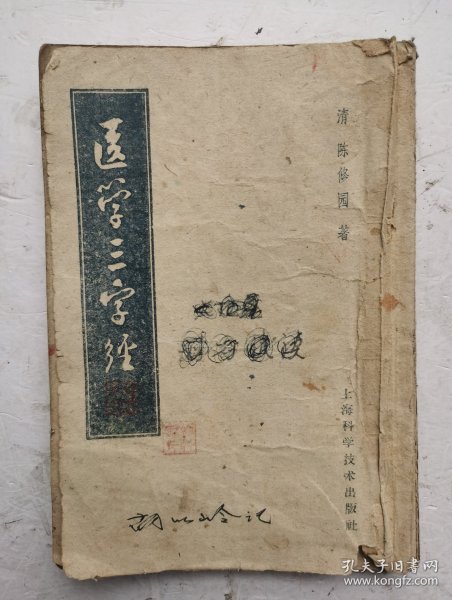 医学三字经
清 陈修园 著
上海科学技术出版社
孔夫子旧书网
www.kongfz.com